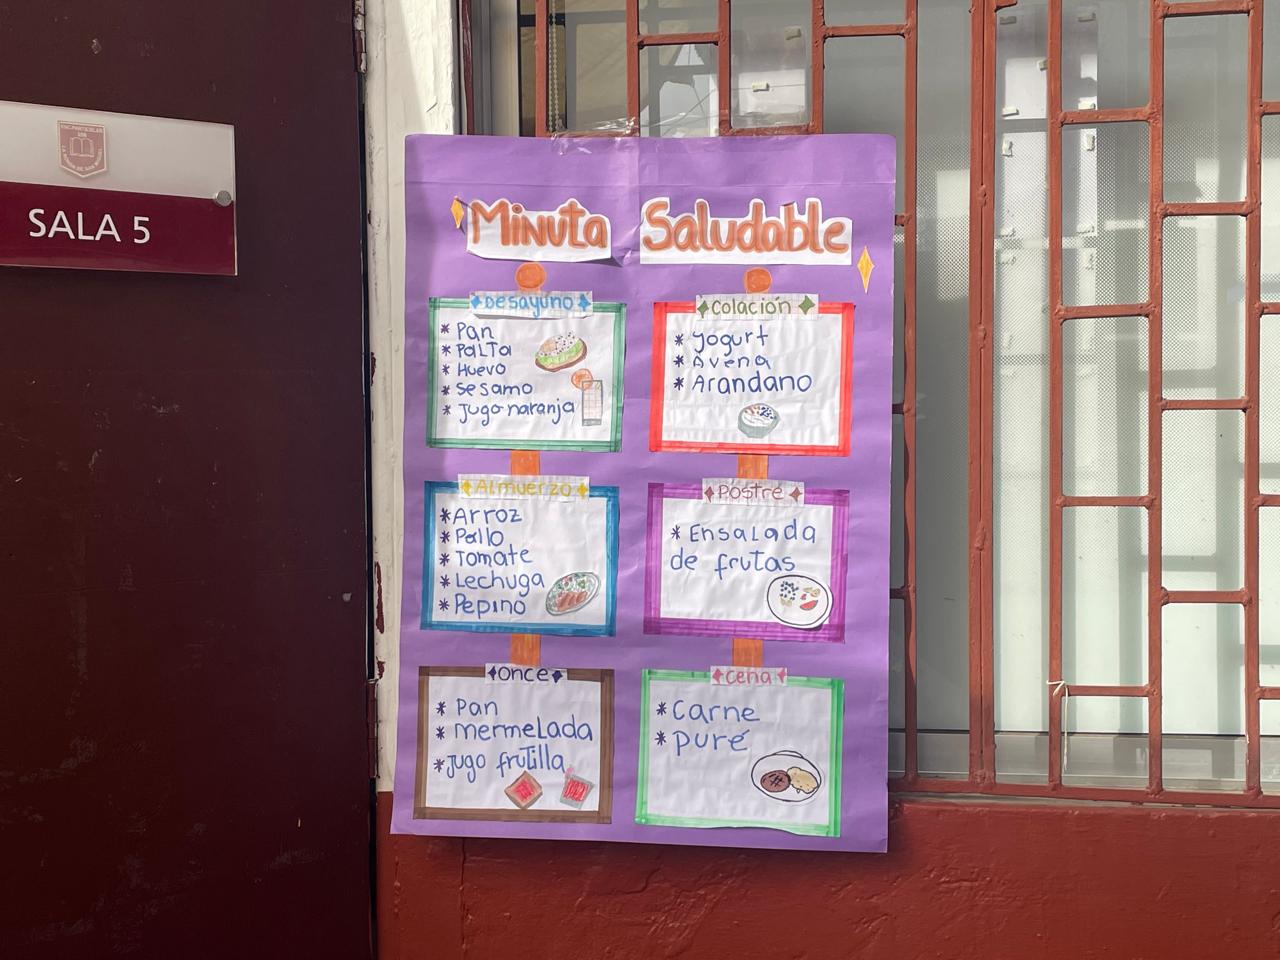 SALA 5
Minuta Saludable
Desayuno
* Pan
* Palta
* Huevo
* Sesamo
* Jugo naranja
Colación
* Yogurt
* Avena
* Arandano
Almuerzo
* Arroz
* Pollo
* Tomate
* Lechuga
* Pepino
Postre
* Ensalada
de frutas
Once
* Pan
* mermelada
* Jugo frutilla
Cena
* Carne
* puré